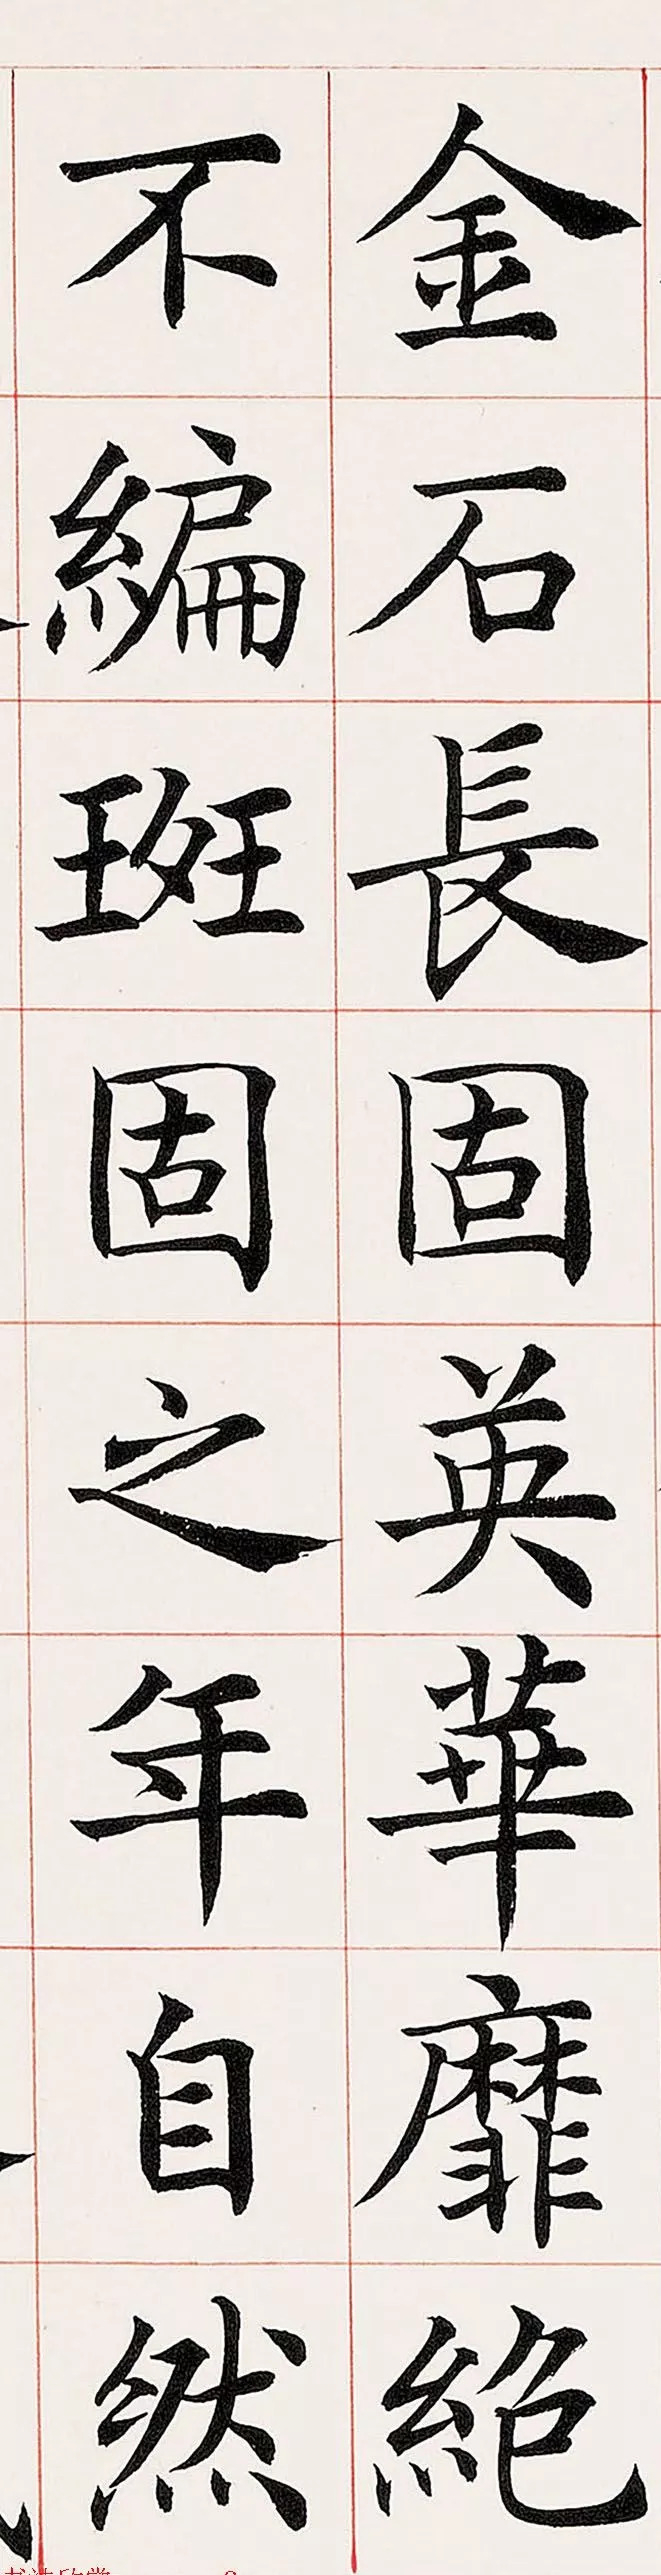 金石長固英華靡絶
不編斑固之年自然